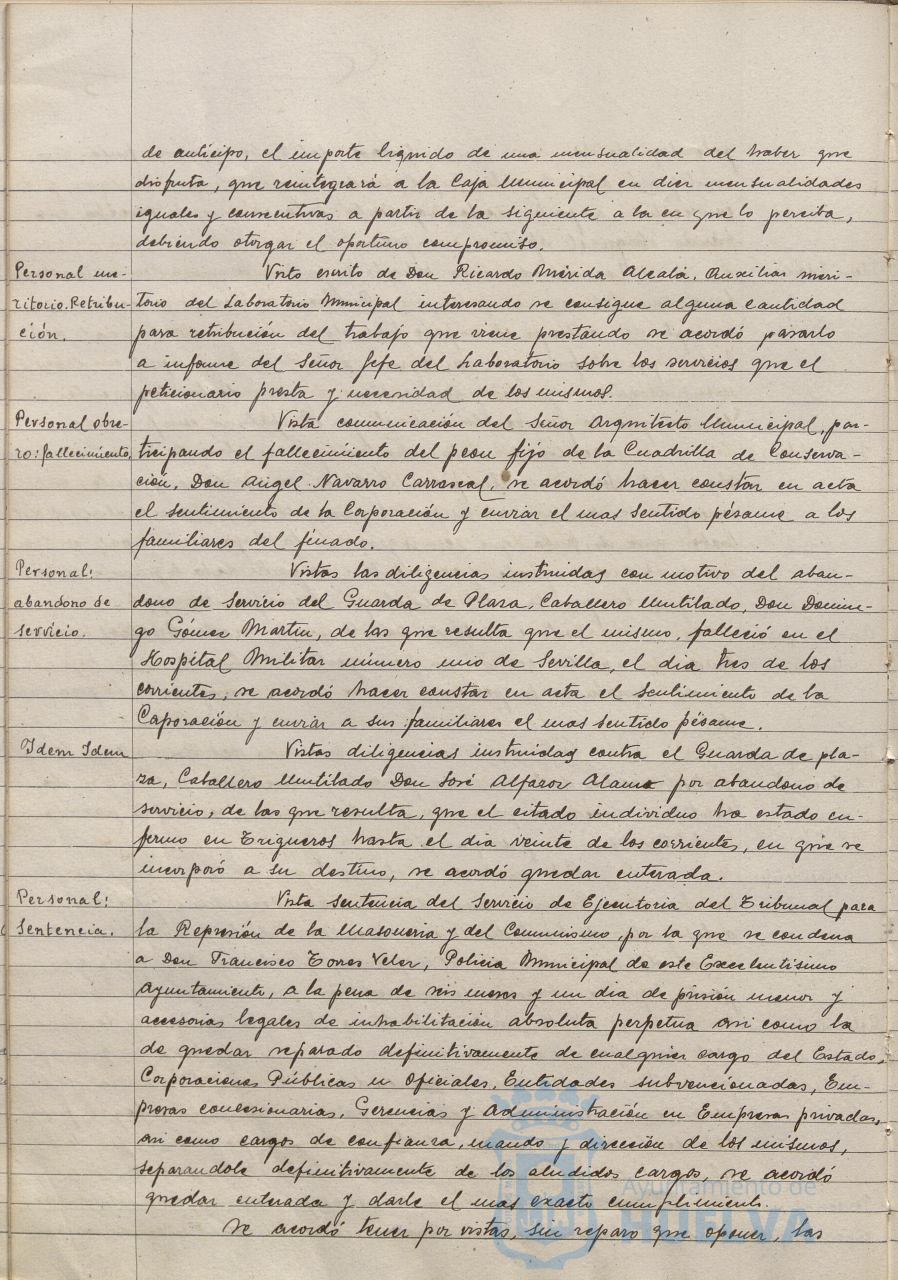 de anticipo, el importe liquido de una mensualidad del haber que
disfruta, que reintegrará a la Caja Municipal en diez mensualidades
iguales y consecutivas a partir de la siguiente a la en que lo perciba,
debiendo otorgar el oportuno compromiso.
Personal me-
ritorio. Retribu-
ción.
Visto escrito de Don Ricardo Mérida Alcalá, Auxiliar meri-
torio del Laboratorio Municipal interesando se consigue alguna cantidad
para retribución del trabajo que viene prestando se acordó pasarlo
a informe del Señor Jefe del Laboratorio sobre los servicios que el
peticionario presta y necesidad de los mismos.
Personal obre-
ro: fallecimiento.
Vista comunicación del Señor Arquitecto Municipal, par-
ticipando el fallecimiento del peon fijo de la Cuadrilla de Conserva-
ción, Don Angel Navarro Carrascal, se acordó hacer constar en acta
el sentimiento de la Corporación y enviar el mas sentido pésame a los
familiares del finado.
Personal:
abandono de
servicio.
Vistas las diligencias instruidas con motivo del aban-
dono de Servicio del Guarda de Plaza, Caballero Mutilado, Don Domin-
go Gómez Martin, de las que resulta que el mismo, falleció en el
Hospital Militar número uno de Sevilla, el dia tres de los
corrientes, se acordó hacer constar en acta el sentimiento de la
Caporación y enviar a sus familiares el mas sentido pésame.
Idem Idem
Vistas diligencias instruidas contra el Guarda de pla-
za, Caballero Mutilado Don José Alfaror Alamo por abandono de
servicio, de las que resulta, que el citado individuo ha estado en-
fermo en Trigueros hasta el dia veinte de los corrientes, en que se
incorporó a su destino, se acordó quedar enterada.
Personal:
Sentencia.
Vista Sentencia del Servicio de Ejecutoria del Tribunal para
la Represión de la Masoneria y del Comunismo, por la que se condena
a Don Francisco Torres Velez, Policia Municipal de este Excelentisimo
Ayuntamiento, a la pena de seis meses y un dia de prision menor y
accesorias legales de inhabilitación absoluta perpetua asi como la
de quedar separado definitivamente de cualquier cargo del Estado,
Corporaciones Públicas u Oficiales, Entidades subvencionadas, Em-
presas concesionarias, Gerencias y Administración en Empresas privadas,
asi como cargos de confianza, mando y dirección de los mismos,
separandole definitivamente de los aludidos cargos, se acordó
quedar enterada y darle el mas exacto cumplimiento.
Se acordó tener por vistas, sin reparo que oponer, las
Ayuntamiento de
HUELVA